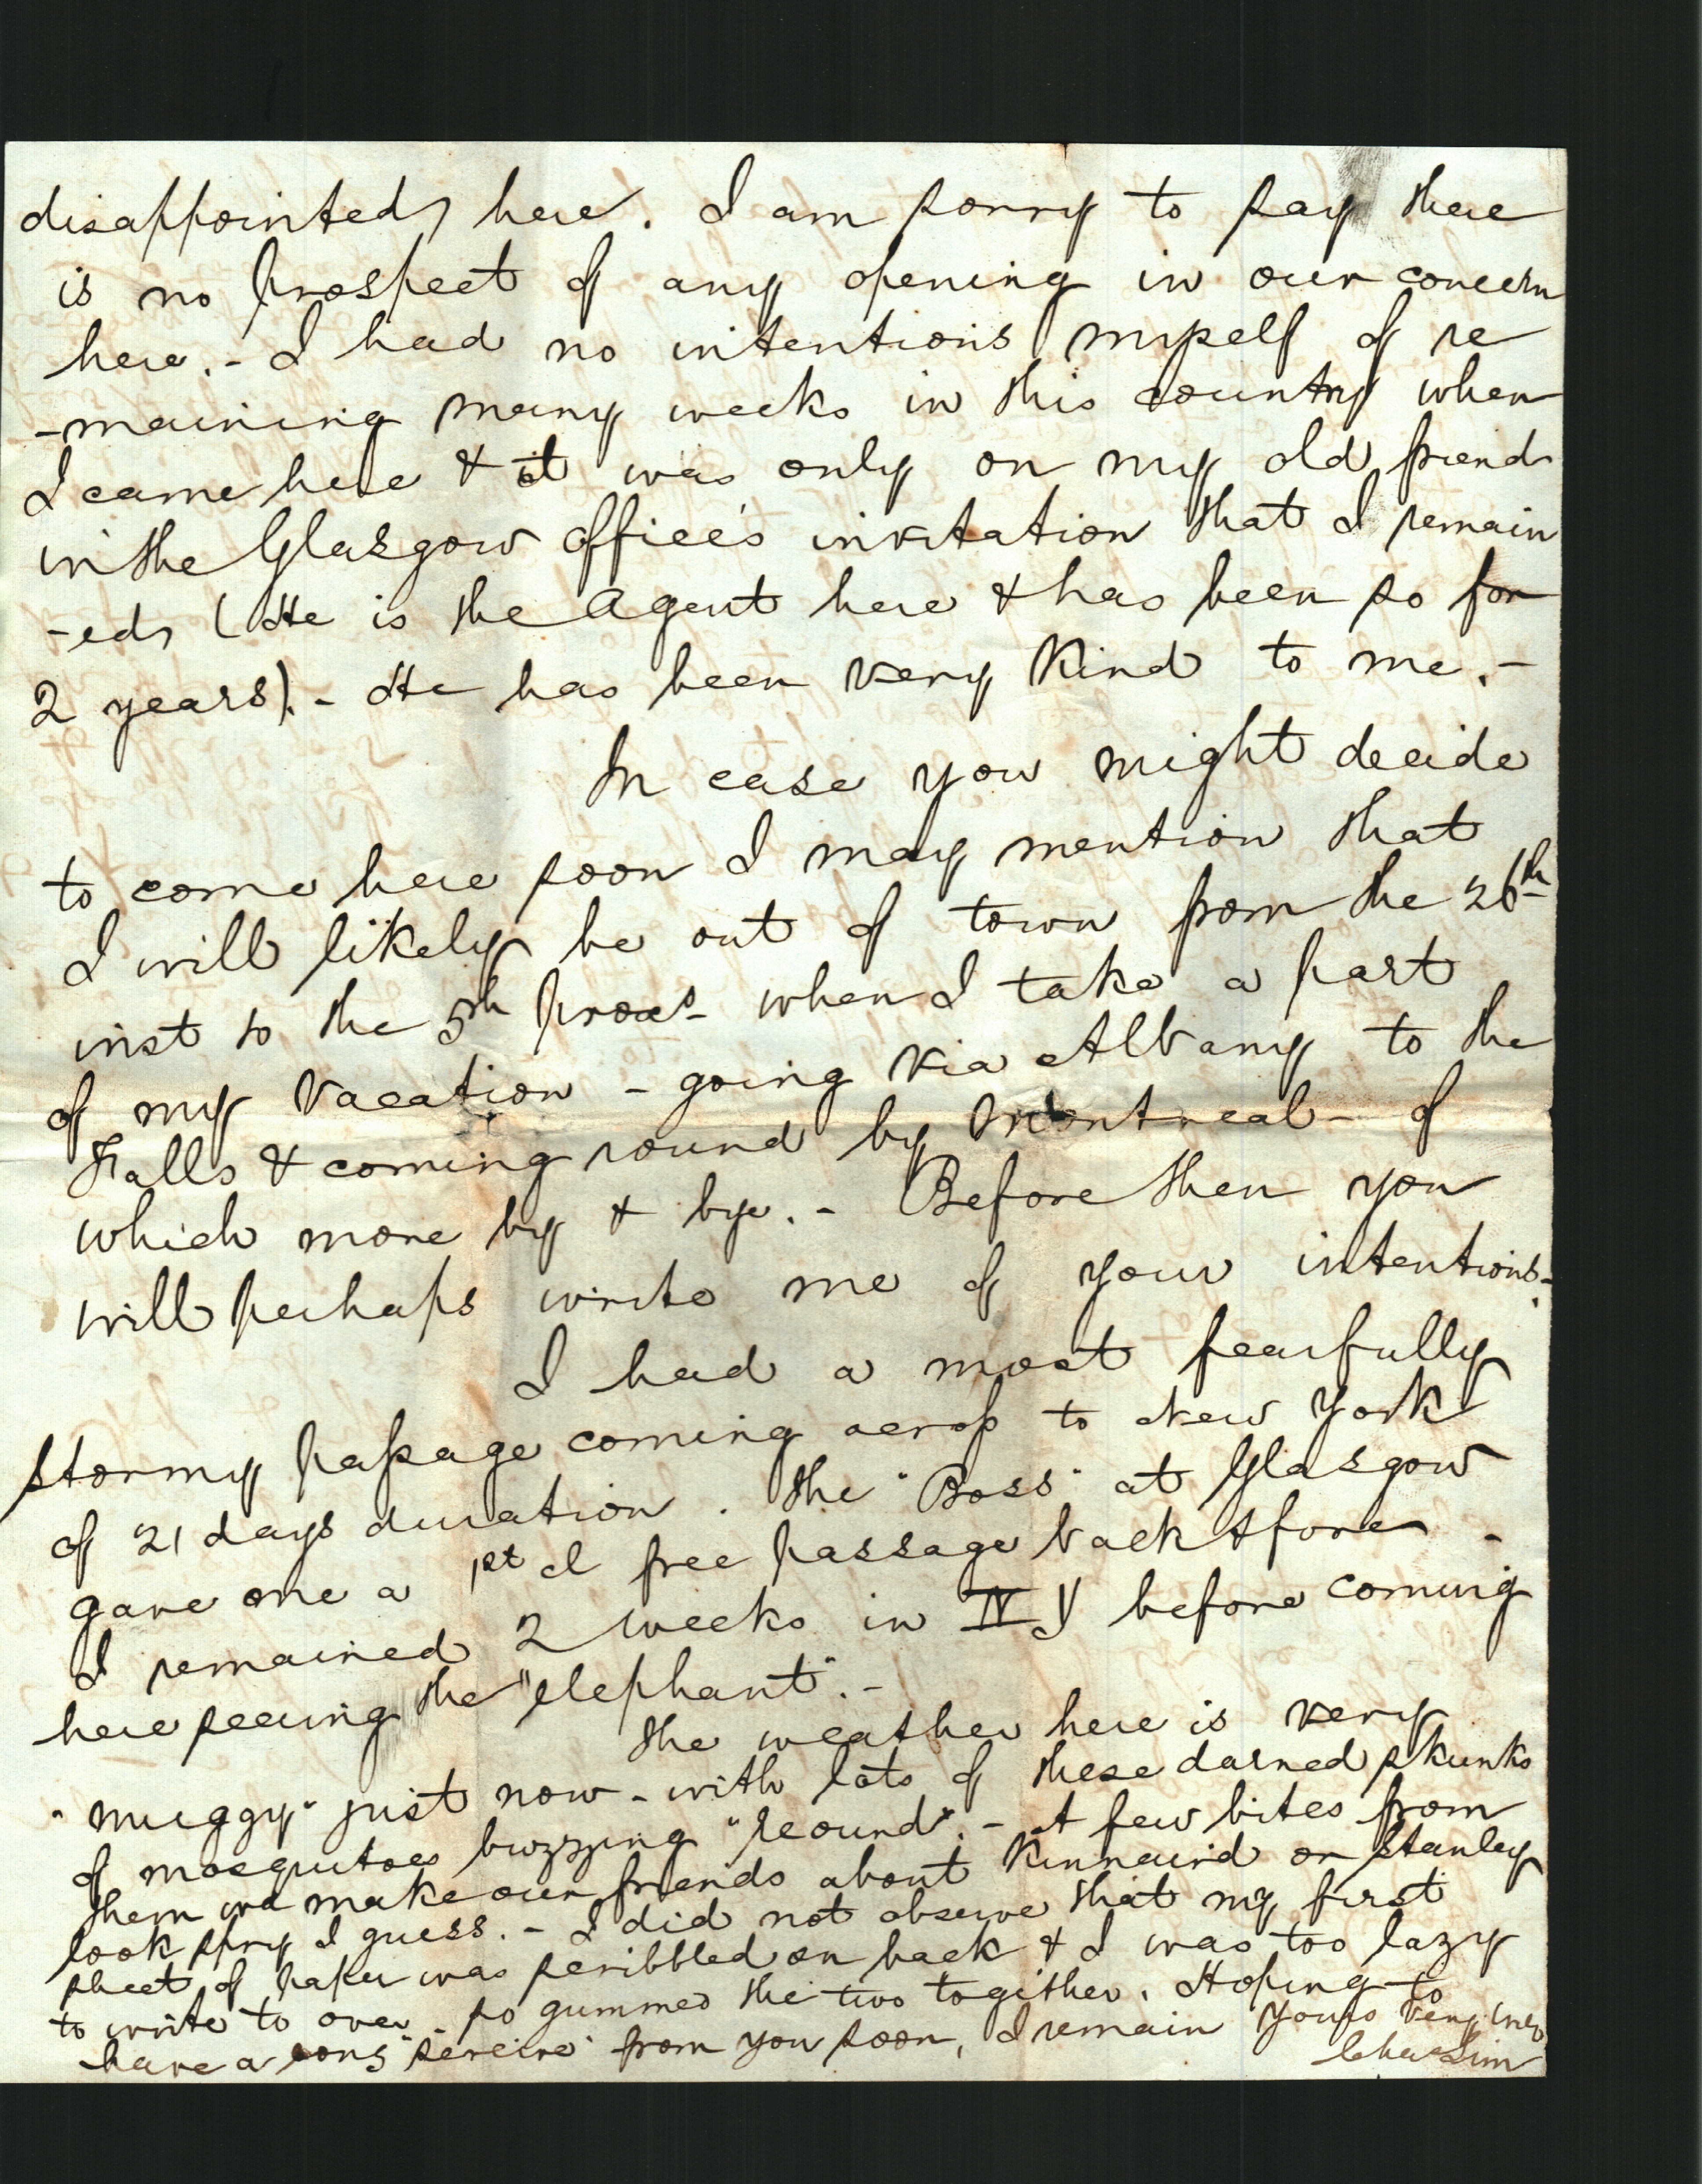 disappointed, here. I am sorry to say there
is no prospect of any opening in our concern
here. - I had no intentions myself of re
-maining many weeks in this country when
I came here & it was only on my old friend
in the Glasgow office's invitation that I remain
-ed, (He is the Agent here & has been so for
2 years). - He has been very kind to me. -
In case you might decide
to come here soon I may mention that
I will likely be out of town from the 26th
inst to the 5th prox. when I take a part
of my vacation - going via Albany to the
Falls & coming round by Montreal - of
which more by & bye. - Before then you
will perhaps write me of your intentions -
I had a most fearfully
stormy passage coming across to New York
of 21 days duration. The "Boss" at Glasgow
gave me a 1st cl free passage back & fore -
I remained 2 weeks in N Y before coming
here seeing the "elephant". -
The weather here is very
"muggy" just now - with lots of these darned skunks
of mosquitoes buzzing "round". - A few bites from
them wd make our friends about Kinnaird or Stanley
look spry I guess. - I did not observe that my first
sheet of paper was scribbled on back & I was too lazy
to write to over - so gummed the two together. Hoping to
have a long from you soon, I remain Yours very
Chas Sim